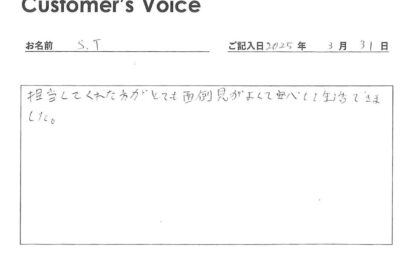 Customer's Voice
お名前 S.T ご記入日2025年 3月 31日
担当してくれた方がとても面倒見がよくて安心して生活できま
した。